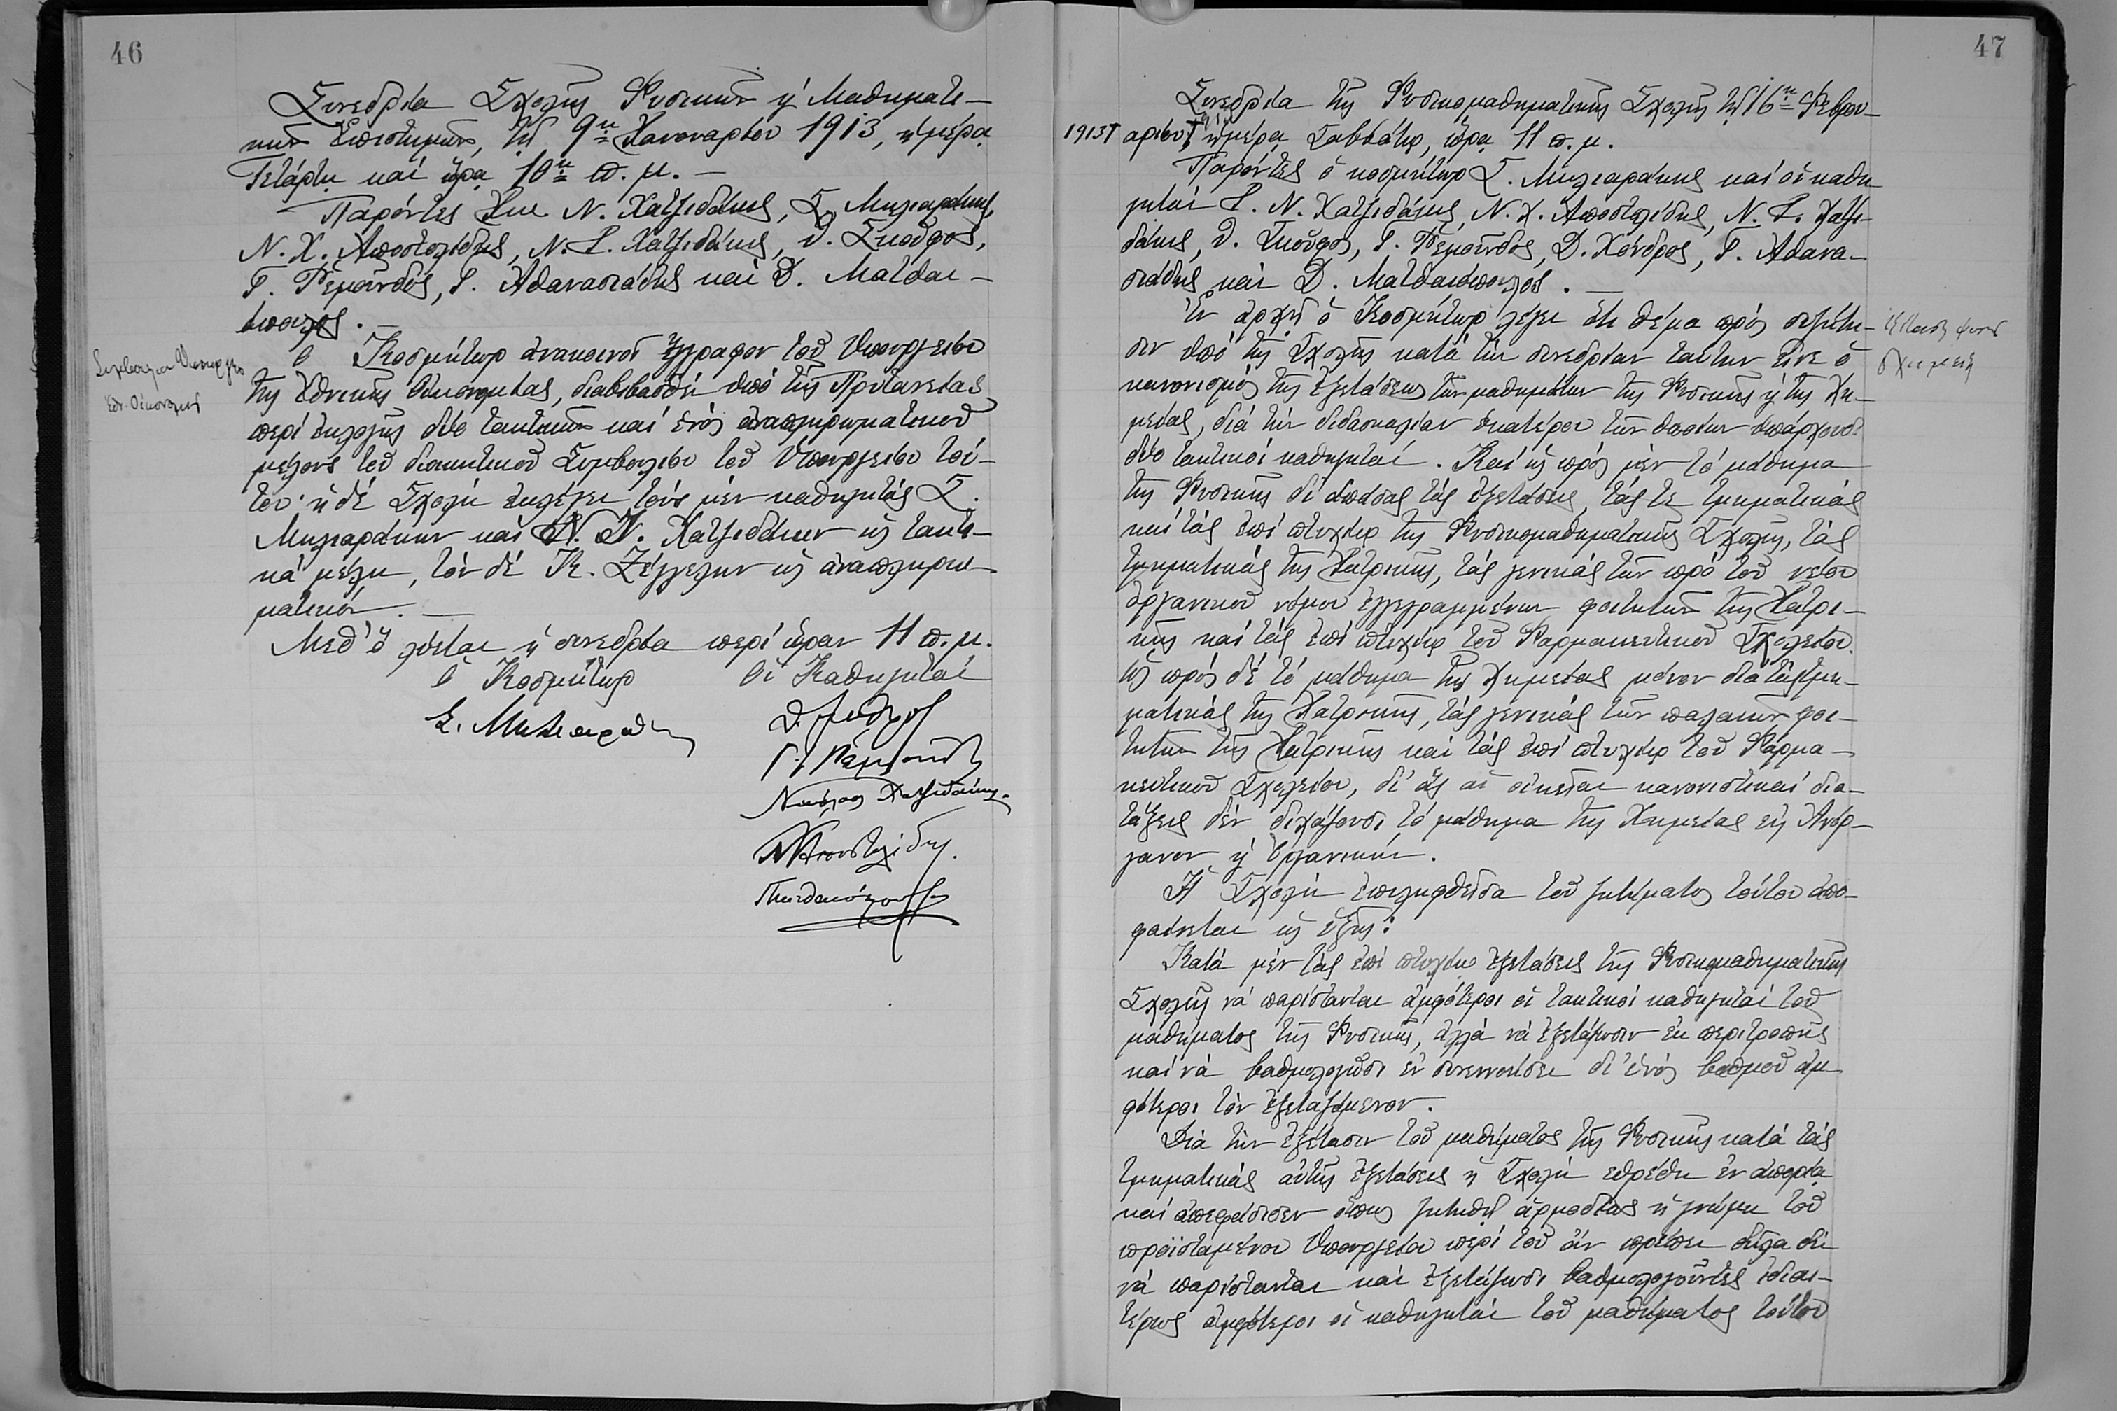 46
Συνεδρία Σχολῆς Φυσικῶν ϗ Μαθηματι-
κῶν Ἐπιστημῶν, τῇ 9ῃ Ἰανουαρίου 1913, ἡμέρᾳ
Τετάρτῃ καὶ ὥρᾳ 10ῃ π. μ. —
Παρόντες Ἰω. Ν. Χατζιδάκις, Σ. Μηλιαράκης,
Ν. Χ. Ἀποστολίδης, Ν. Ι. Χατζιδάκις, Θ. Σκοῦφος,
Γ. Ρεμοῦνδος, Γ. Ἀθανασιάδης καὶ Δ. Ματθαι-
όπουλος. —
Συμβούλια Ὑπουργείου
Ἐθν. Οἰκονομίας
Ὁ Κοσμήτωρ ἀνακοινοῖ ἔγγραφον τοῦ Ὑπουργείου
τῆς Ἐθνικῆς Οἰκονομίας, διαβιβασθὲν ὑπὸ τῆς Πρυτανείας
περὶ ἐκλογῆς δύο τακτικῶν καὶ ἑνὸς ἀναπληρωματικοῦ
μέλους τοῦ διοικητικοῦ Συμβουλίου τοῦ Ὑπουργείου τού-
του· ἡ δὲ Σχολὴ ἐκλέγει τοὺς μὲν καθηγητὰς Σ.
Μηλιαράκην καὶ Ἰ. Ν. Χατζιδάκιν ὡς τακτι-
κὰ μέλη, τὸν δὲ Κ. Ζέγγελην ὡς ἀναπληρω-
ματικόν. —
Μεθ' ὃ λύεται ἡ συνεδρία περὶ ὥραν 11 π. μ.
Ὁ Κοσμήτωρ Οἱ Καθηγηταὶ
Σ. Μηλιαράκης
Θ. Σκοῦφος
Γ. Ρεμοῦνδος
Νικόλαος Χατζιδάκις
Ν Χ Ἀποστολίδης
Ματθαιόπουλος
47
Συνεδρία τῆς Φυσικομαθηματικῆς Σχολῆς τῇ 16ῃ Φεβρου-
1913† αρίου† ἡμέρᾳ Σαββάτῳ, ὥρᾳ 11 π. μ.
Παρόντες ὁ κοσμήτωρ Σ. Μηλιαράκης καὶ οἱ καθη-
γηταὶ Ι. Ν. Χατζιδάκις, Ν. Χ. Ἀποστολίδης, Ν. Ι. Χατζι-
δάκις, Θ. Σκοῦφος, Γ. Ρεμοῦνδος, Δ. Χόνδρος, Γ. Ἀθανα-
σιάδης καὶ Δ. Ματθαιόπουλος. —
Ἐν ἀρχῇ ὁ Κοσμήτωρ λέγει ὅτι θέμα πρὸς συζήτη-
σιν ὑπὸ τῆς Σχολῆς κατὰ τὴν συνεδρίαν ταύτην εἶνε ὁ
κανονισμὸς τῆς ἐξετάσεως τῶν μαθημάτων τῆς Φυσικῆς ϗ τῆς Χη-
μείας, διὰ τὴν διδασκαλίαν ἑκατέρου τῶν ὁποίων ὑπάρχουσι
δύο τακτικοὶ καθηγηταί. Καὶ ὡς πρὸς μὲν τὸ μάθημα
τῆς Φυσικῆς δι' ἁπάσας τὰς ἐξετάσεις, τάς τε τμηματικὰς
καὶ τὰς ἐπὶ πτυχίῳ τῆς Φυσικομαθηματικῆς Σχολῆς, τὰς
τμηματικὰς τῆς Ἰατρικῆς, τὰς γενικὰς τῶν πρὸ τοῦ νέου
ὀργανικοῦ νόμου ἐγγεγραμμένων φοιτητῶν τῆς Ἰατρι-
κῆς καὶ τὰς ἐπὶ πτυχίῳ τοῦ Φαρμακευτικοῦ Σχολείου.
ὡς πρὸς δὲ τὸ μάθημα τῆς Χημείας μόνον διὰ τὰς τμη-
ματικὰς τῆς Ἰατρικῆς, τὰς γενικὰς τῶν παλαιῶν φοι-
τητῶν τῆς Ἰατρικῆς καὶ τὰς ἐπὶ πτυχίῳ τοῦ Φαρμα-
κευτικοῦ Σχολείου, δι' ἃς αἱ οἰκεῖαι κανονιστικαὶ δια-
τάξεις δὲν διχάζουσι τὸ μάθημα τῆς Χημείας εἰς Ἀνόρ-
γανον ϗ Ὀργανικήν.
Ἡ Σχολὴ ἐπιληφθεῖσα τοῦ ζητήματος τούτου ἀπο-
φαίνεται ὡς ἑξῆς:
Κατὰ μὲν τὰς ἐπὶ πτυχίῳ ἐξετάσεις τῆς Φυσικομαθηματικῆς
Σχολῆς νὰ παρίστανται ἀμφότεροι οἱ τακτικοὶ καθηγηταὶ τοῦ
μαθήματος τῆς Φυσικῆς, ἀλλὰ νὰ ἐξετάζωσιν ἐκ περιτροπῆς
καὶ νὰ βαθμολογῶσι ἐν συνεννοήσει δι' ἑνὸς βαθμοῦ ἀμ-
φότεροι τὸν ἐξεταζόμενον.
Διὰ τὴν ἐξέτασιν τοῦ μαθήματος τῆς Φυσικῆς κατὰ τὰς
τμηματικὰς αὐτῆς ἐξετάσεις ἡ Σχολὴ εὑρέθη ἐν ἀπορίᾳ
καὶ ἀπεφάσισεν ὅπως ζητηθῇ ἁρμοδίως ἡ γνώμη τοῦ
προϊσταμένου Ὑπουργείου περὶ τοῦ ἂν πρέπει
νὰ παρίστανται καὶ ἐξετάζωσι βαθμολογοῦντες ἰδιαι-
τέρως ἀμφότεροι οἱ καθηγηταὶ τοῦ μαθήματος τούτου